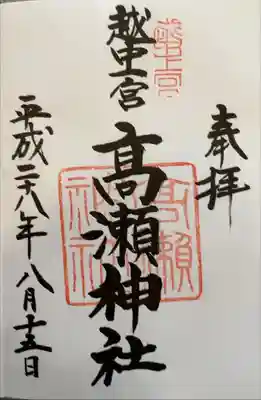 奉拝
越中一宮
高瀬神社
平成二十八年八月十五日
一宮
高瀬神社